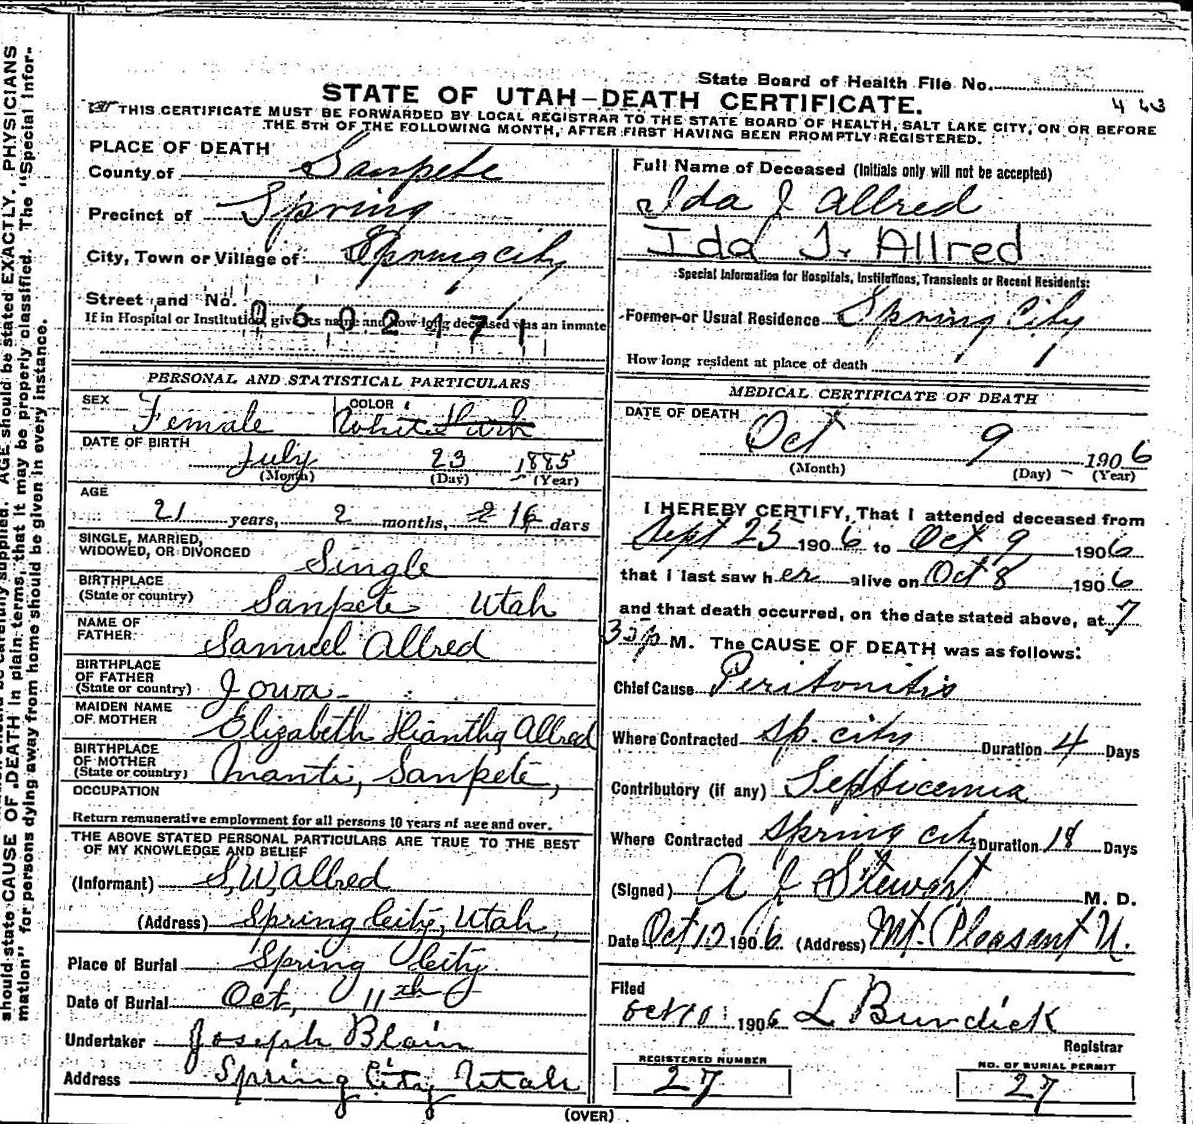 State Board of Health File No.
STATE OF UTAH—DEATH CERTIFICATE.
THIS CERTIFICATE MUST BE FORWARDED BY LOCAL REGISTRAR TO THE STATE BOARD OF HEALTH, SALT LAKE CITY, ON OR BEFORE
THE 5TH OF THE FOLLOWING MONTH, AFTER FIRST HAVING BEEN PROMPTLY REGISTERED.
PLACE OF DEATH
County of Sanpete
Precinct of Spring
City, Town or Village of Spring city
Street and No.
0602171
If in Hospital or Institution, give its name and how long deceased was an inmate
PERSONAL AND STATISTICAL PARTICULARS
SEX Female COLOR White
DATE OF BIRTH
July 23 1885
(Month) (Day) (Year)
AGE
21 years, 2 months, 16 days
SINGLE, MARRIED,
WIDOWED, OR DIVORCED Single
BIRTHPLACE
(State or country) Sanpete Utah
NAME OF
FATHER Samuel Allred
BIRTHPLACE
OF FATHER
(State or country) Iowa
MAIDEN NAME
OF MOTHER Elizabeth Allred
BIRTHPLACE
OF MOTHER
(State or country) Manti, Sanpete,
OCCUPATION
Return remunerative employment for all persons 10 years of age and over.
THE ABOVE STATED PERSONAL PARTICULARS ARE TRUE TO THE BEST
OF MY KNOWLEDGE AND BELIEF
(Informant) S.W. Allred
(Address) Spring City, Utah,
Place of Burial Spring City
Date of Burial Oct, 11th
Undertaker Joseph Blain
Address Spring City, Utah
Full Name of Deceased (Initials only will not be accepted)
Ida J Allred
Ida J. Allred
Special Information for Hospitals, Institutions, Transients or Recent Residents:
Former or Usual Residence Spring City
How long resident at place of death
MEDICAL CERTIFICATE OF DEATH
DATE OF DEATH
Oct 9 1906
(Month) (Day) (Year)
I HEREBY CERTIFY, That I attended deceased from
Sept 25 1906 to Oct 9 1906
that I last saw her alive on Oct 8 1906
and that death occurred, on the date stated above, at 7
35 p M. The CAUSE OF DEATH was as follows:
Chief Cause Peritonitis
Where Contracted Sp. city Duration 4 Days
Contributory (if any) Septicemia
Where Contracted Spring city Duration 18 Days
(Signed) A J Stewart M. D.
Date Oct 10 1906 (Address) Mt. Pleasant U.
Filed
Oct 10 1906 L Burdick
Registrar
REGISTERED NUMBER
27
NO. OF BURIAL PERMIT
27
(OVER)
should state CAUSE OF DEATH in plain terms, that it may be properly classified. The "Special Infor-
mation" for persons dying away from home should be given in every instance.